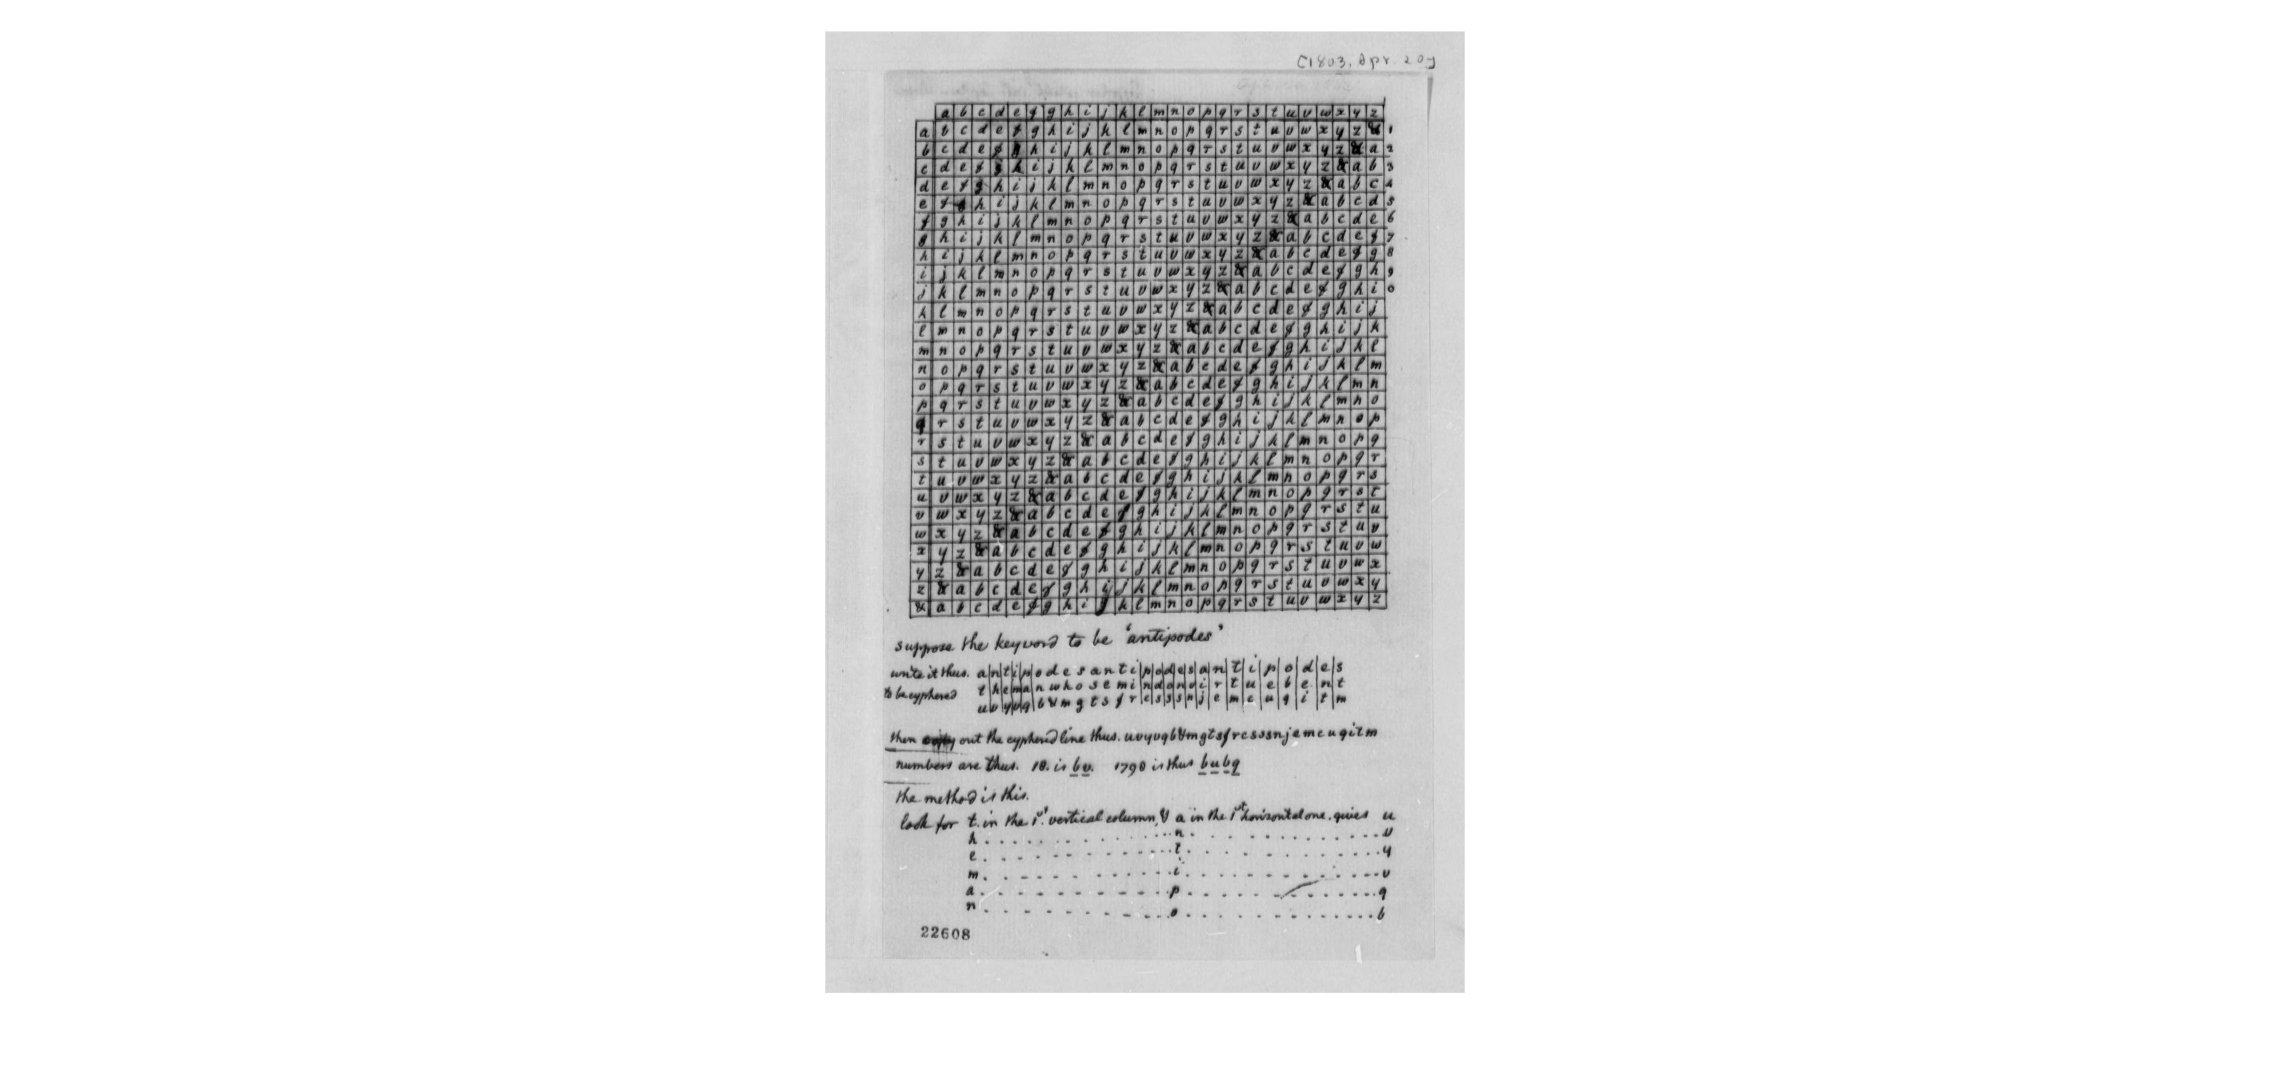 [1803, Apr. 20]
a b c d e f g h i j k l m n o p q r s t u v w x y z
a b c d e f g h i j k l m n o p q r s t u v w x y z & 1
b c d e f g h i j k l m n o p q r s t u v w x y z & a 2
c d e f g h i j k l m n o p q r s t u v w x y z & a b 3
d e f g h i j k l m n o p q r s t u v w x y z & a b c 4
e f g h i j k l m n o p q r s t u v w x y z & a b c d 5
f g h i j k l m n o p q r s t u v w x y z & a b c d e 6
g h i j k l m n o p q r s t u v w x y z & a b c d e f 7
h i j k l m n o p q r s t u v w x y z & a b c d e f g 8
i j k l m n o p q r s t u v w x y z & a b c d e f g h 9
j k l m n o p q r s t u v w x y z & a b c d e f g h i 0
k l m n o p q r s t u v w x y z & a b c d e f g h i j
l m n o p q r s t u v w x y z & a b c d e f g h i j k
m n o p q r s t u v w x y z & a b c d e f g h i j k l
n o p q r s t u v w x y z & a b c d e f g h i j k l m
o p q r s t u v w x y z & a b c d e f g h i j k l m n
p q r s t u v w x y z & a b c d e f g h i j k l m n o
q r s t u v w x y z & a b c d e f g h i j k l m n o p
r s t u v w x y z & a b c d e f g h i j k l m n o p q
s t u v w x y z & a b c d e f g h i j k l m n o p q r
t u v w x y z & a b c d e f g h i j k l m n o p q r s
u v w x y z & a b c d e f g h i j k l m n o p q r s t
v w x y z & a b c d e f g h i j k l m n o p q r s t u
w x y z & a b c d e f g h i j k l m n o p q r s t u v
x y z & a b c d e f g h i j k l m n o p q r s t u v w
y z & a b c d e f g h i j k l m n o p q r s t u v w x
z & a b c d e f g h i j k l m n o p q r s t u v w x y
& a b c d e f g h i j k l m n o p q r s t u v w x y z
suppose the keyword to be 'antipodes'
write it thus. a n t i p o d e s a n t i p o d e s a n t i p o d e s
to be cyphered t h e m a n w h o s e m i n d o n v i r t u e b e n t
u v y v q b & m g t s f r c s s s n j e m c u q i t m
then out the cyphered line thus. uvyvqb&mgtsfrcsssnjemcuqitm
numbers are thus. 18. is bv. 1798 is thus bubq
the method is this.
look for t. in the 1st. vertical column, & a in the 1st horizontal one. gives u
h . . . n . . . v
e . . . t . . . y
m . . . i . . . v
a . . . p . . . q
n . . . o . . . b
22608